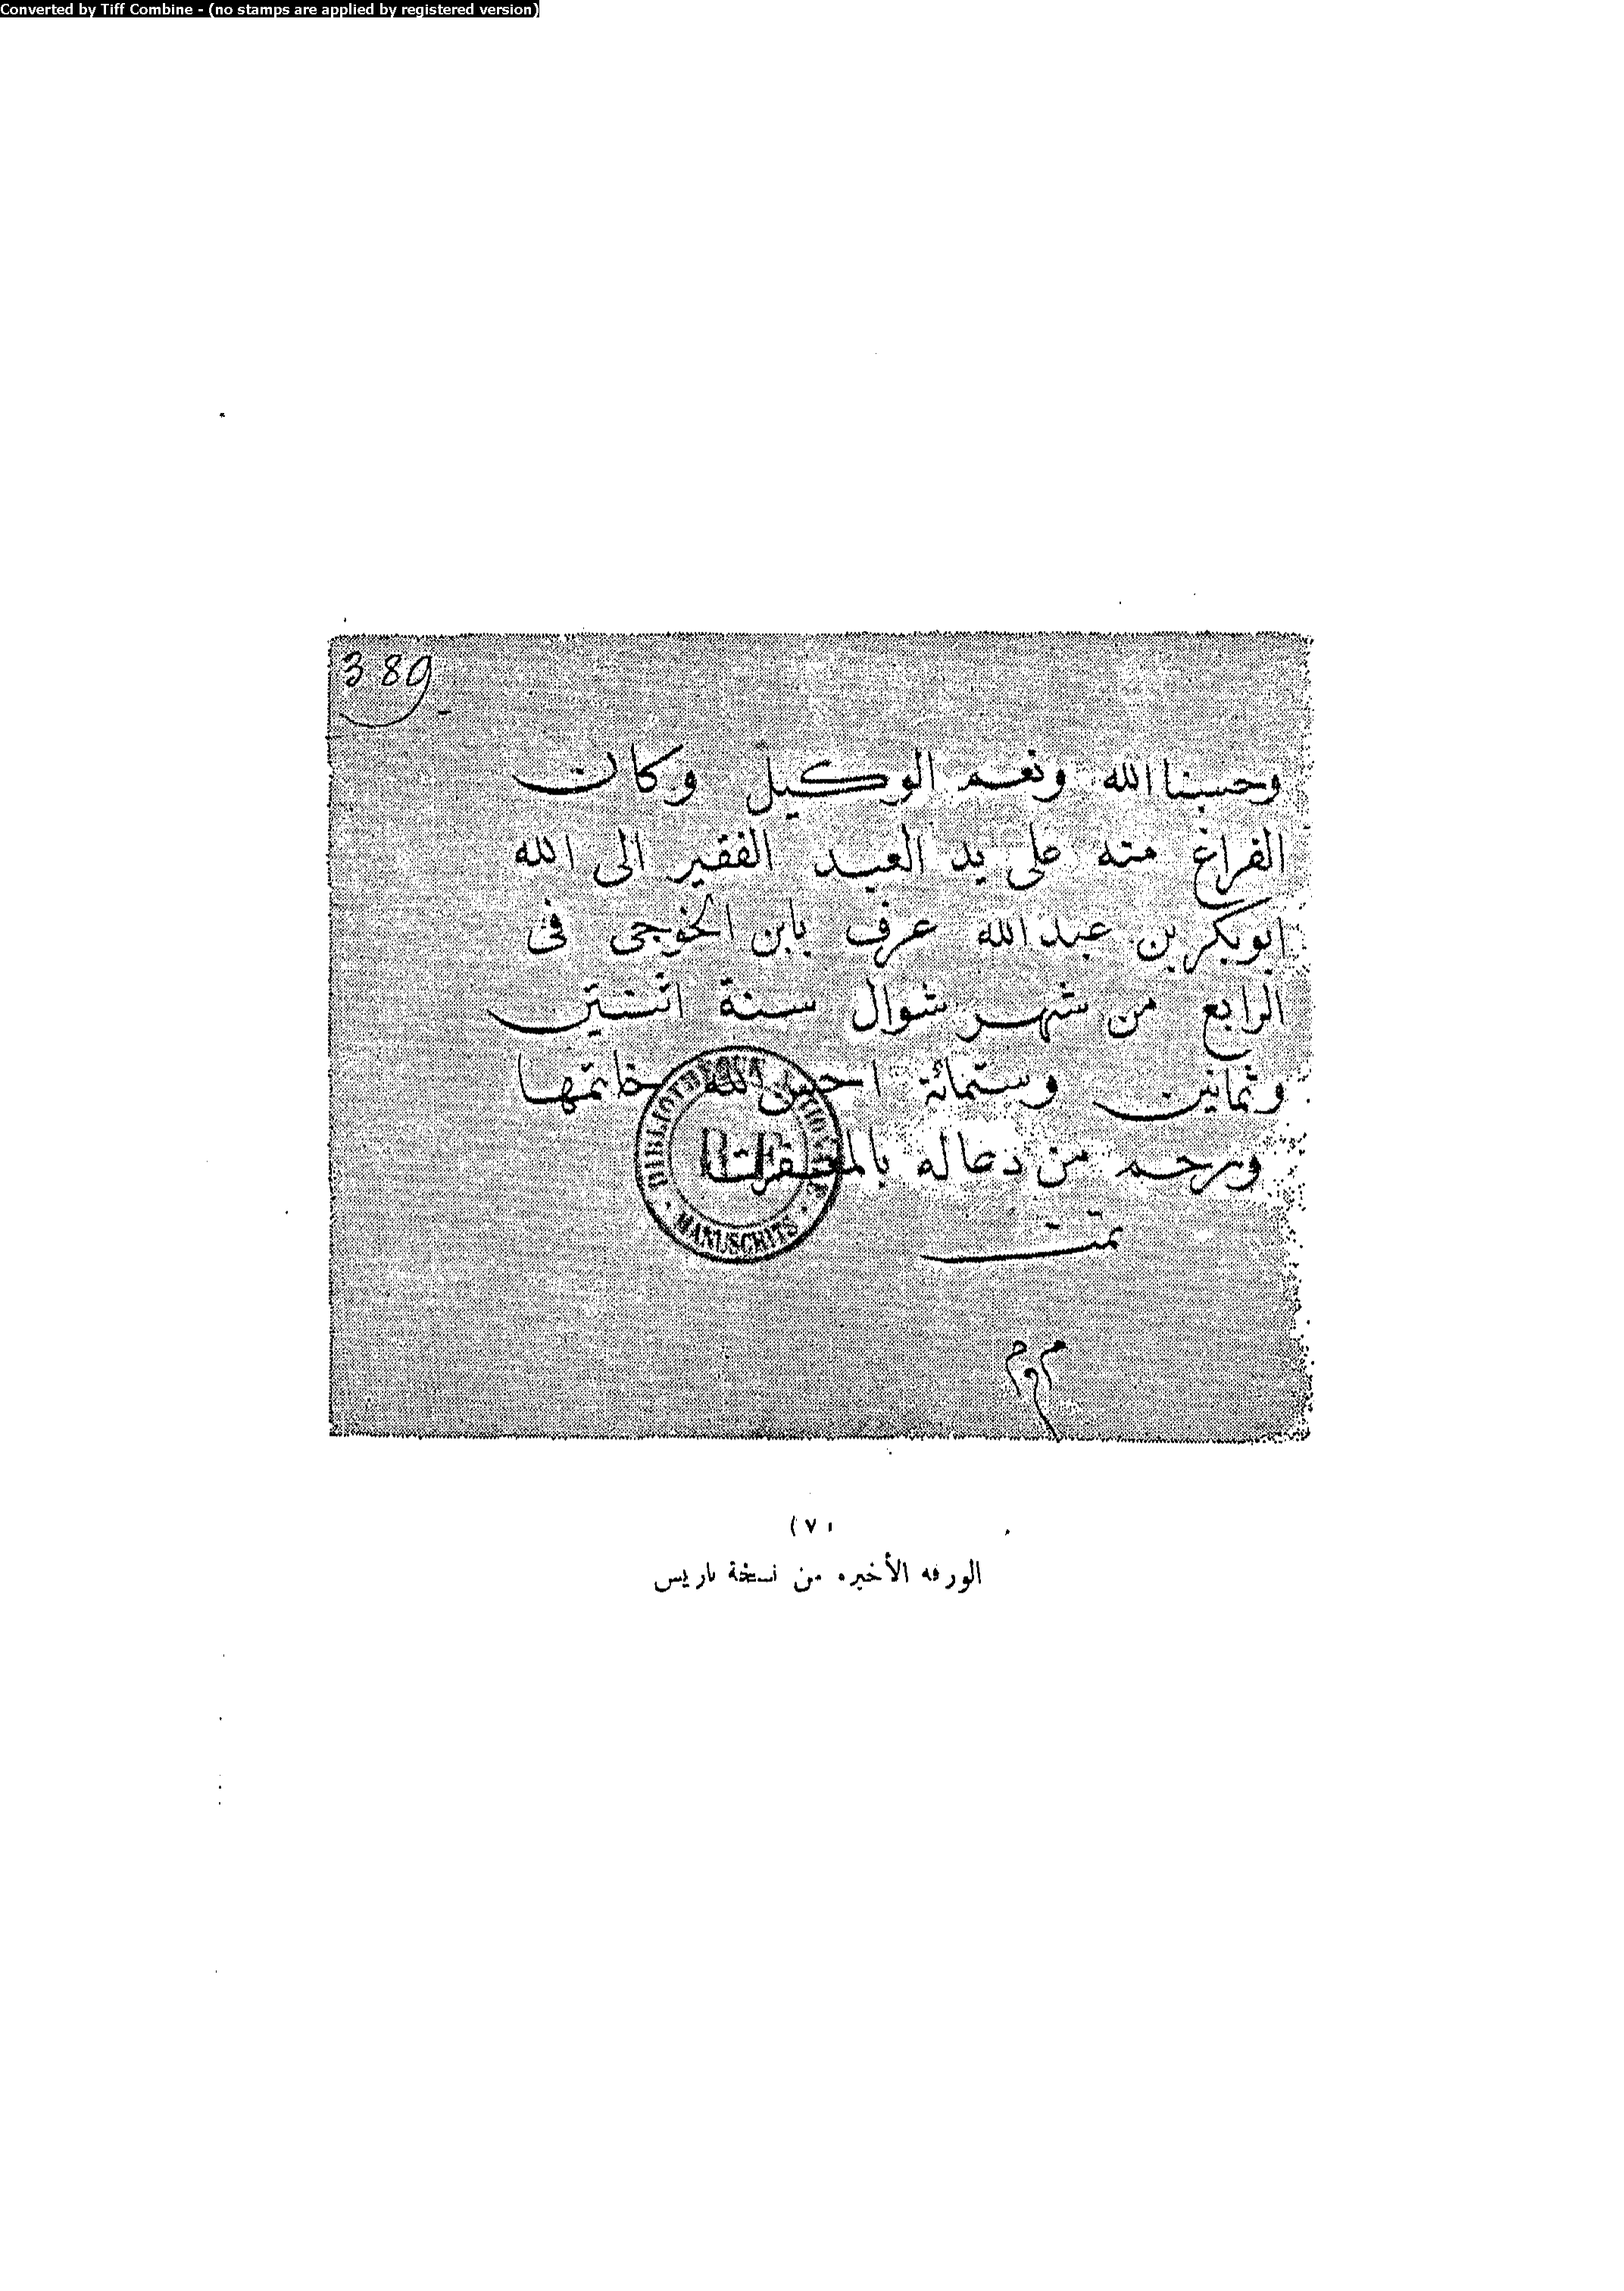 Converted by Tiff Combine - (no stamps are applied by registered version)
389
وحسبنا الله ونعم الوكيل وكان
الفراغ منه على يد العبد الفقير الى الله
ابو بكر بن عبد الله عرف بابن الخوجى فى
الرابع من شهر شوال سنة اثنتين
وثمانين وستمائة احسن الله خاتمتها
ورحم من دعا له بالمغفرة
تمت
BIBLIOTHEQUE NATIONALE
R F
MANUSCRITS
(٧)
الورقه الأخيره من نسخة باريس